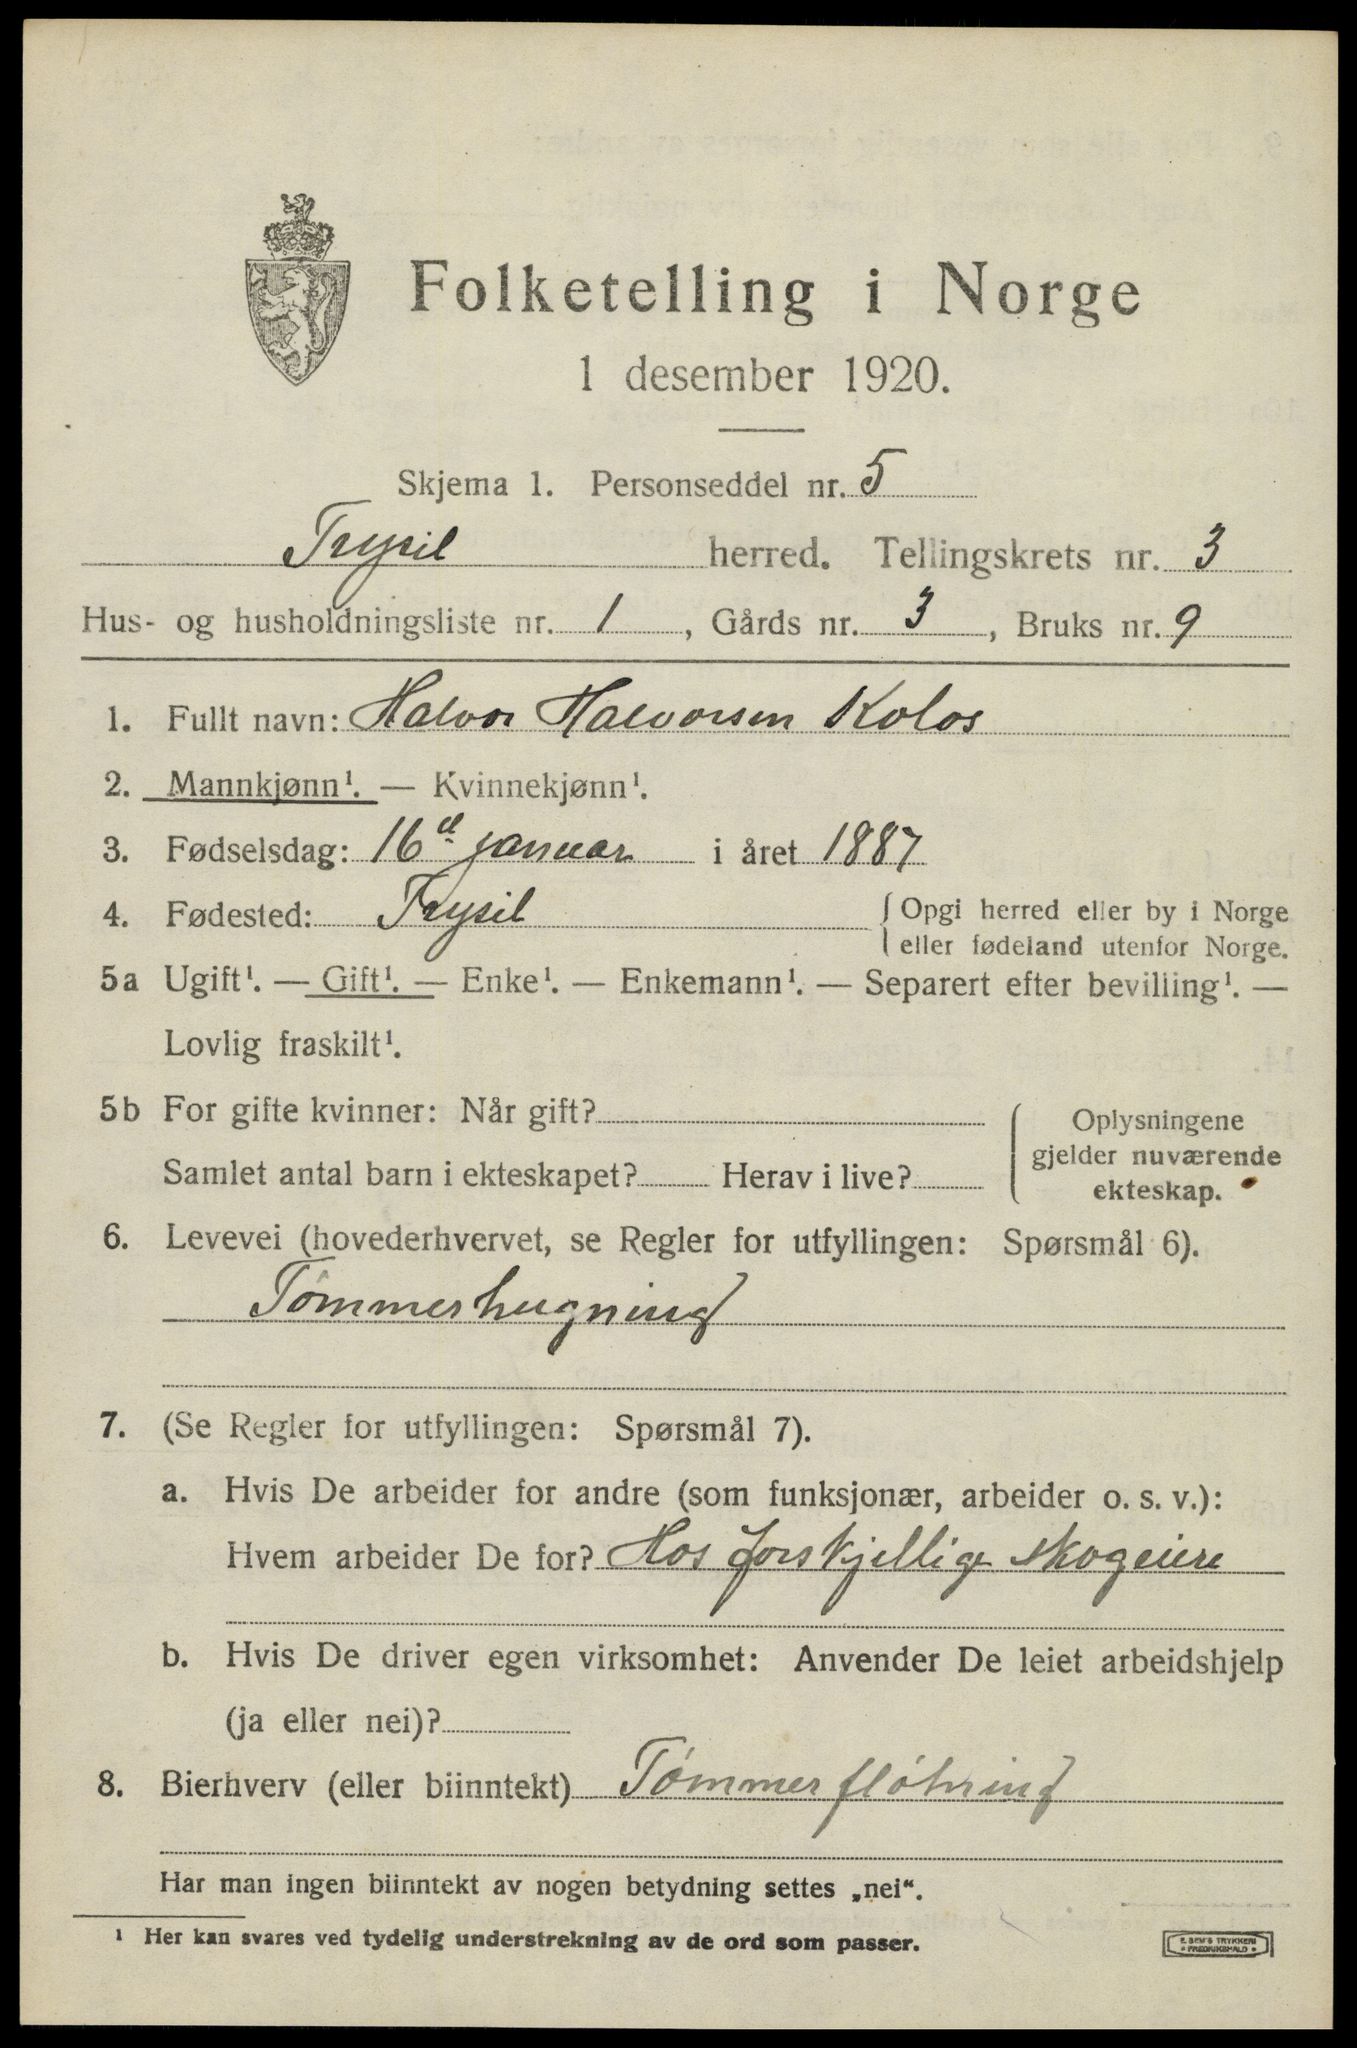 Folketelling i Norge
1 desember 1920.
Skjema 1. Personseddel nr. 5
Trysil herred. Tellingskrets nr. 3
Hus- og husholdningsliste nr. 1, Gårds nr. 3, Bruks nr. 9
1. Fullt navn: Halvor Halvorsen Kolos
2. Mannkjønn¹. — Kvinnekjønn¹.
3. Fødselsdag: 16d januar i året 1887
4. Fødested: Trysil { Opgi herred eller by i Norge
eller fødeland utenfor Norge.
5a Ugift¹. — Gift¹. — Enke¹. — Enkemann¹. — Separert efter bevilling¹. —
Lovlig fraskilt¹.
5b For gifte kvinner: Når gift?
Samlet antal barn i ekteskapet? Herav i live?
Oplysningene
gjelder nuværende
ekteskap.
6. Levevei (hovederhvervet, se Regler for utfyllingen: Spørsmål 6).
Tømmerhugning
7. (Se Regler for utfyllingen: Spørsmål 7).
a. Hvis De arbeider for andre (som funksjonær, arbeider o. s. v.):
Hvem arbeider De for? Hos forskjellige skogeiere
b. Hvis De driver egen virksomhet: Anvender De leiet arbeidshjelp
(ja eller nei)?
8. Bierhverv (eller biinntekt) Tømmerfløtning
Har man ingen biinntekt av nogen betydning settes „nei“.
¹ Her kan svares ved tydelig understrekning av de ord som passer.
E. SEM'S TRYKKERI
FREDRIKSHALD